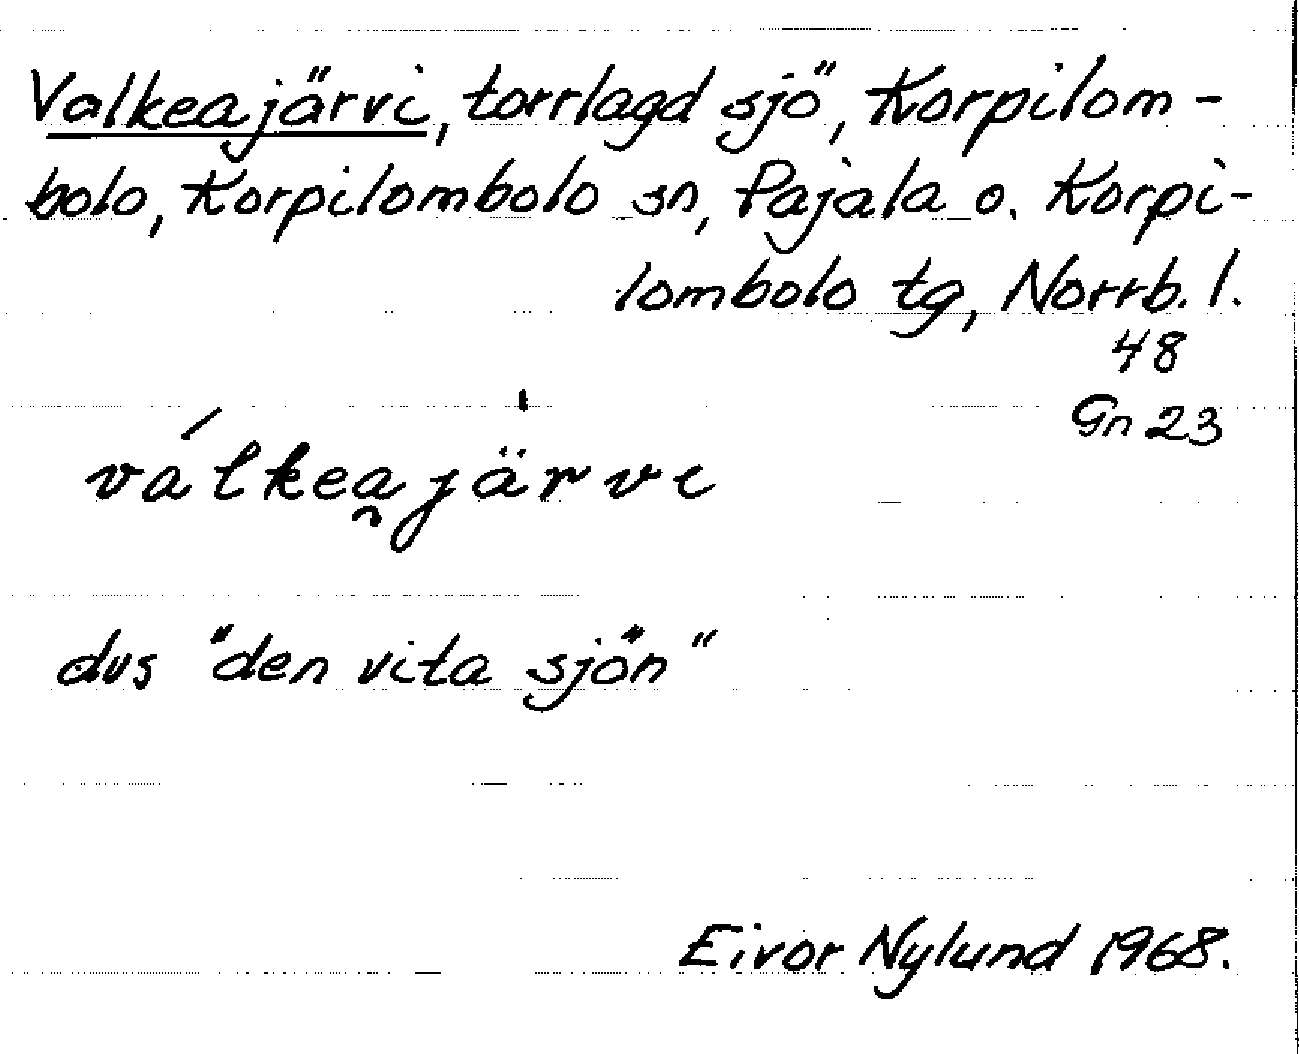 Valkeajärvi, torrlagd sjö, Korpilom-
bolo, Korpilombolo sn, Pajala o. Korpi-
lombolo tg, Norrb. l.
48
Gn 23
válkea̯jä̍rvi
dvs "den vita sjön"
Eivor Nylund 1968.